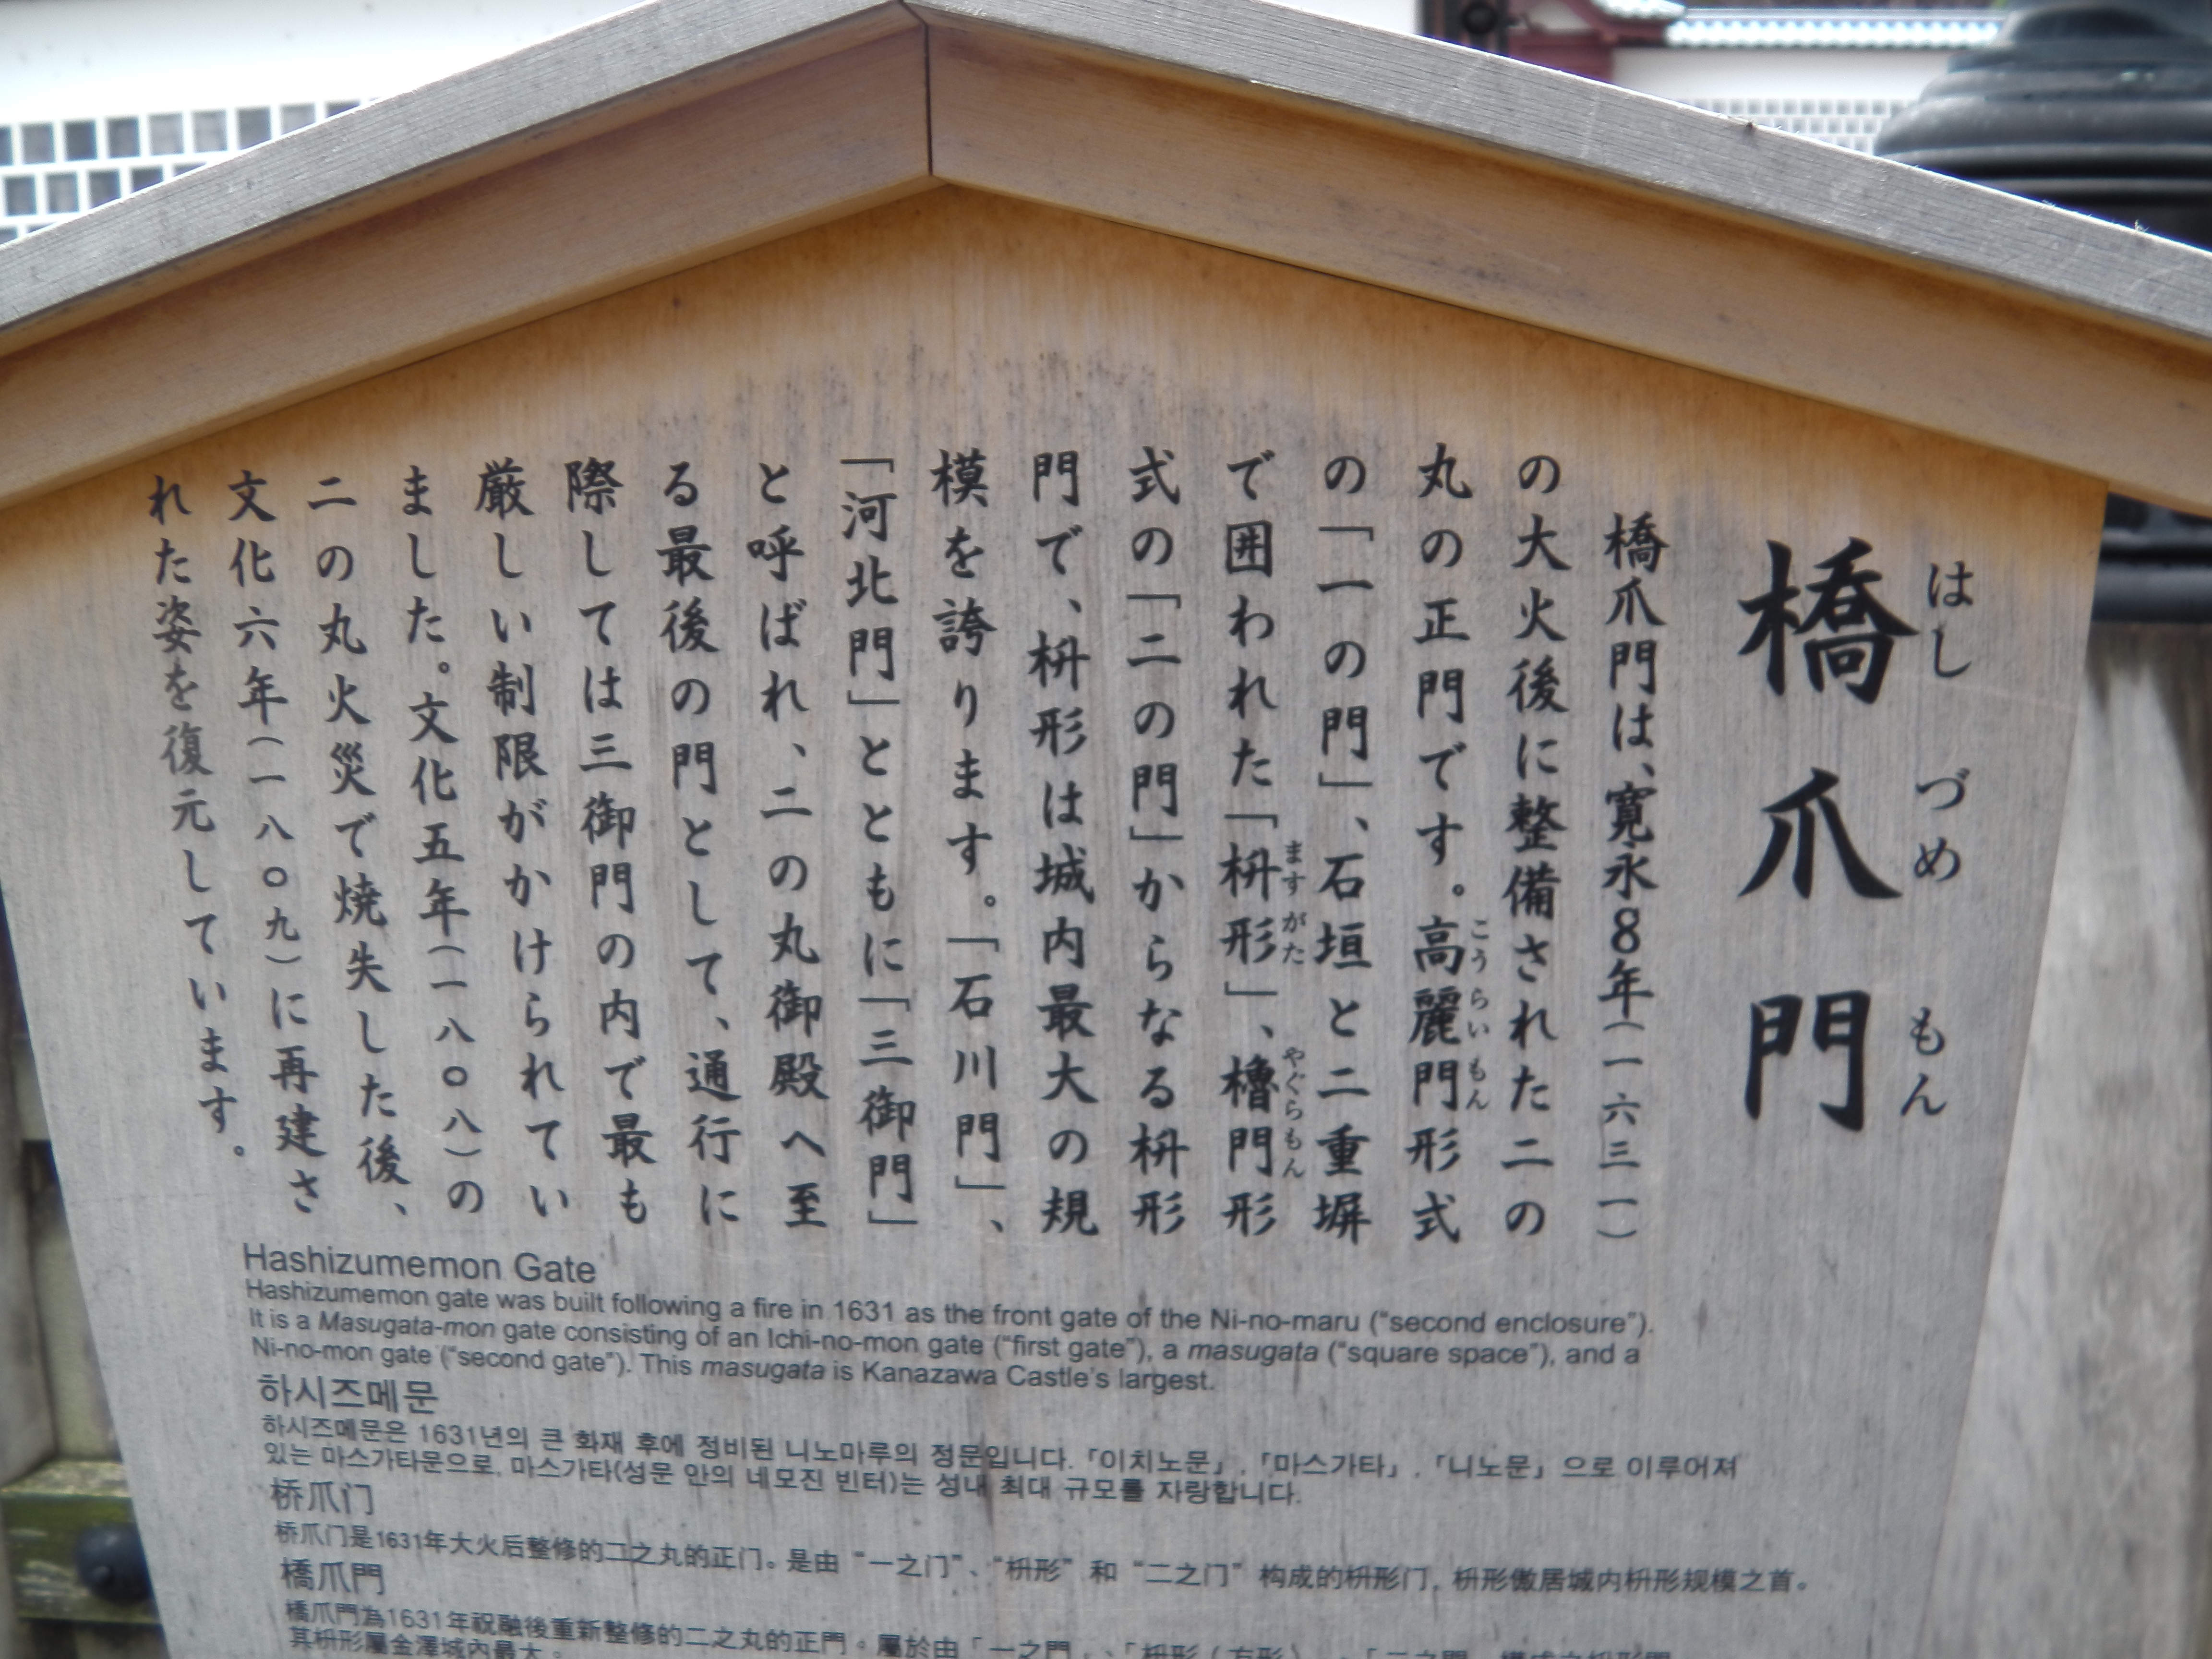 橋爪門
はし づめ もん
橋爪門は、寛永8年(一六三一)
の大火後に整備された二の
丸の正門です。高麗門形式
こうらいもん
の「一の門」、石垣と二重塀
で囲われた「枡形」、櫓門形
ますがた やぐらもん
式の「二の門」からなる枡形
門で、枡形は城内最大の規
模を誇ります。「石川門」、
「河北門」とともに「三御門」
と呼ばれ、二の丸御殿へ至
る最後の門として、通行に
際しては三御門の内で最も
厳しい制限がかけられてい
ました。文化五年(一八〇八)の
二の丸火災で焼失した後、
文化六年(一八〇九)に再建さ
れた姿を復元しています。
Hashizumemon Gate
Hashizumemon gate was built following a fire in 1631 as the front gate of the Ni-no-maru (“second enclosure”).
It is a Masugata-mon gate consisting of an Ichi-no-mon gate (“first gate”), a masugata (“square space”), and a
Ni-no-mon gate (“second gate”). This masugata is Kanazawa Castle’s largest.
하시즈메문
하시즈메문은 1631년의 큰 화재 후에 정비된 니노마루의 정문입니다. 「이치노문」, 「마스가타」, 「니노문」으로 이루어져
있는 마스가타문으로, 마스가타(성문 안의 네모진 빈터)는 성내 최대 규모를 자랑합니다.
桥爪门
桥爪门是1631年大火后整修的二之丸的正门。是由“一之门”、“枡形”和“二之门”构成的枡形门, 枡形傲居城内枡形规模之首。
橋爪門
橋爪門為1631年祝融後重新整修的二之丸的正門。屬於由「一之門」、「枡形(方形)」、「二之門」構成之枡形門
其枡形屬金澤城內最大。